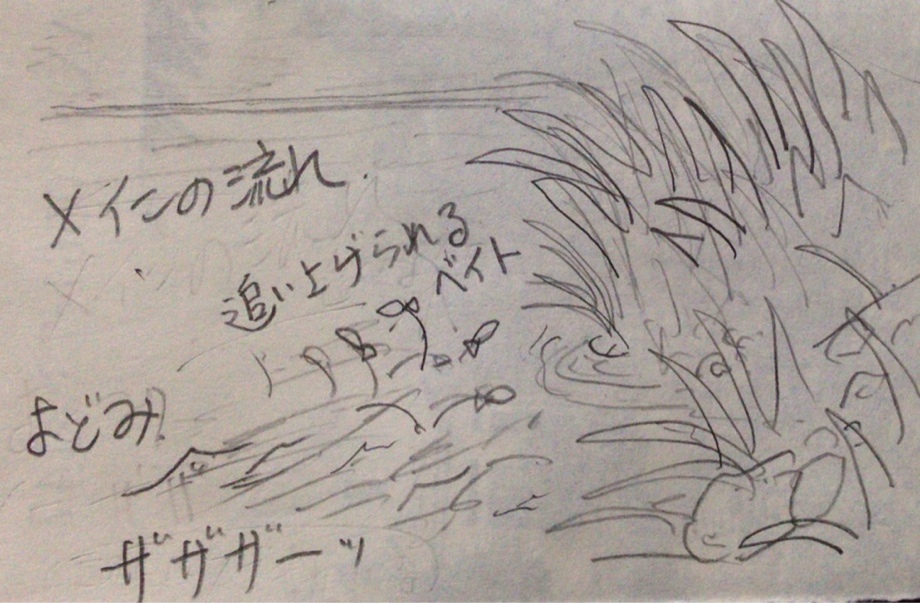 メインの流れ.
追い上げられる
ベイト
よどみ.
ザザザーッ